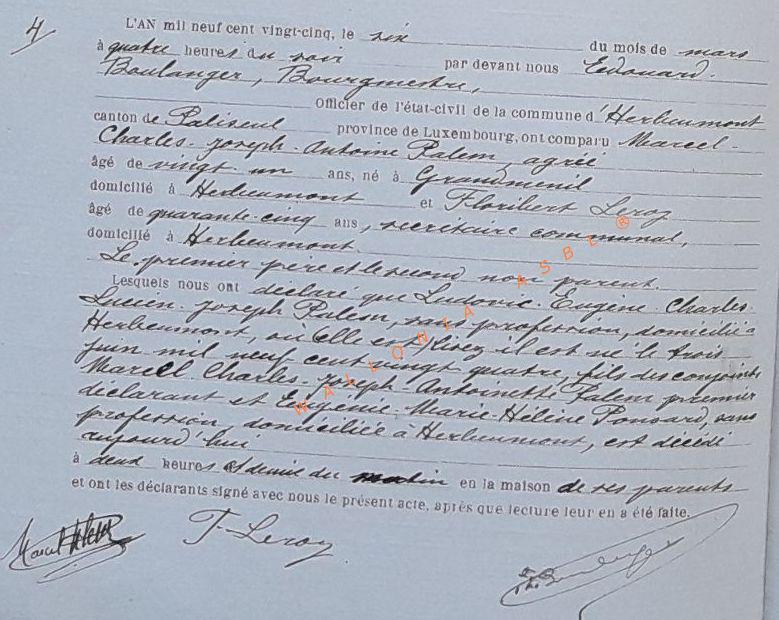 4/
L'AN mil neuf cent vingt-cinq, le six du mois de mars
à quatre heures du soir par devant nous Edouard
Boulanger, Bourgmestre,
Officier de l'état-civil de la commune d'Herbeumont
canton de Paliseul province de Luxembourg, ont comparu Marcel-
Charles-Joseph-Antoine Palem, agréé
âgé de vingt un ans, né à Grandmenil
domicilié à Herbeumont et Floribert Leroy
âgé de quarante-cinq ans, secrétaire communal,
domicilié à Herbeumont
Le premier père et le second non parent.
Lesquels nous ont déclaré que Ludovic-Eugène-Charles-
Lucien-Joseph Palem, sans profession, domicilié à
Herbeumont, où elle est, lisez il est né le trois
juin mil neuf cent vingt quatre, fils des conjoints
Marcel-Charles-Joseph-Antoinette Palem premier
déclarant et Eugénie-Marie-Hélène Ponsard, sans
profession, domiciliée à Herbeumont, est décédé
aujourd'hui
à deux heures et demie du matin en la maison de ses parents
et ont les déclarants signé avec nous le présent acte, après que lecture leur en a été faite.
WALLONIA ASBL ®
Marcel Palem
F. Leroy
Boulanger